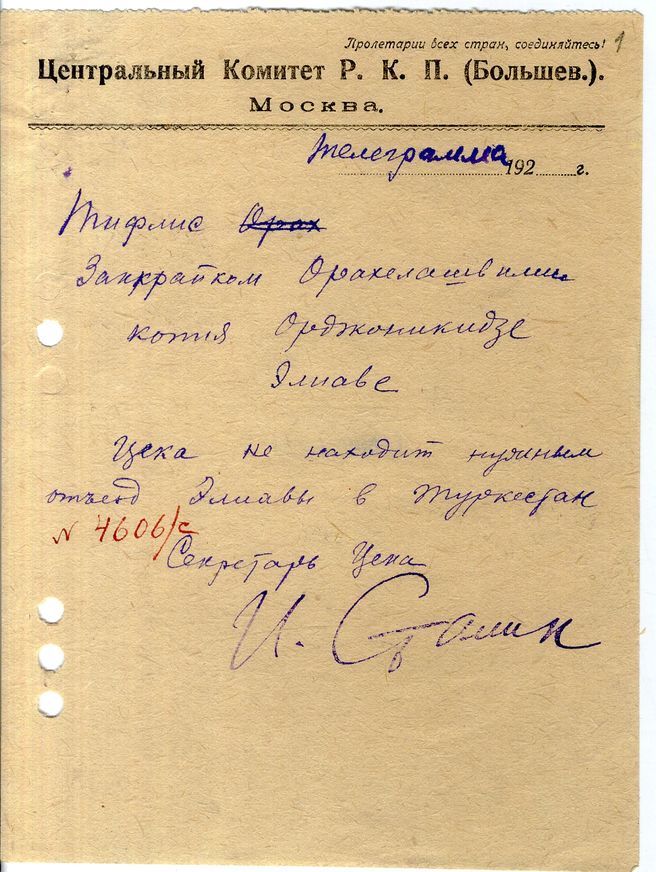 Пролетарии всех стран, соединяйтесь! 1
Центральный Комитет Р. К. П. (Большев.).
Москва.
Телеграмма 192 г.
Тифлис Орах
Закрайком Орахелашвили
копия Орджоникидзе
Элиаве
Цека не находит нужным
отъезд Элиавы в Туркестан
N 4606/с
Секретарь Цека
И. Сталин